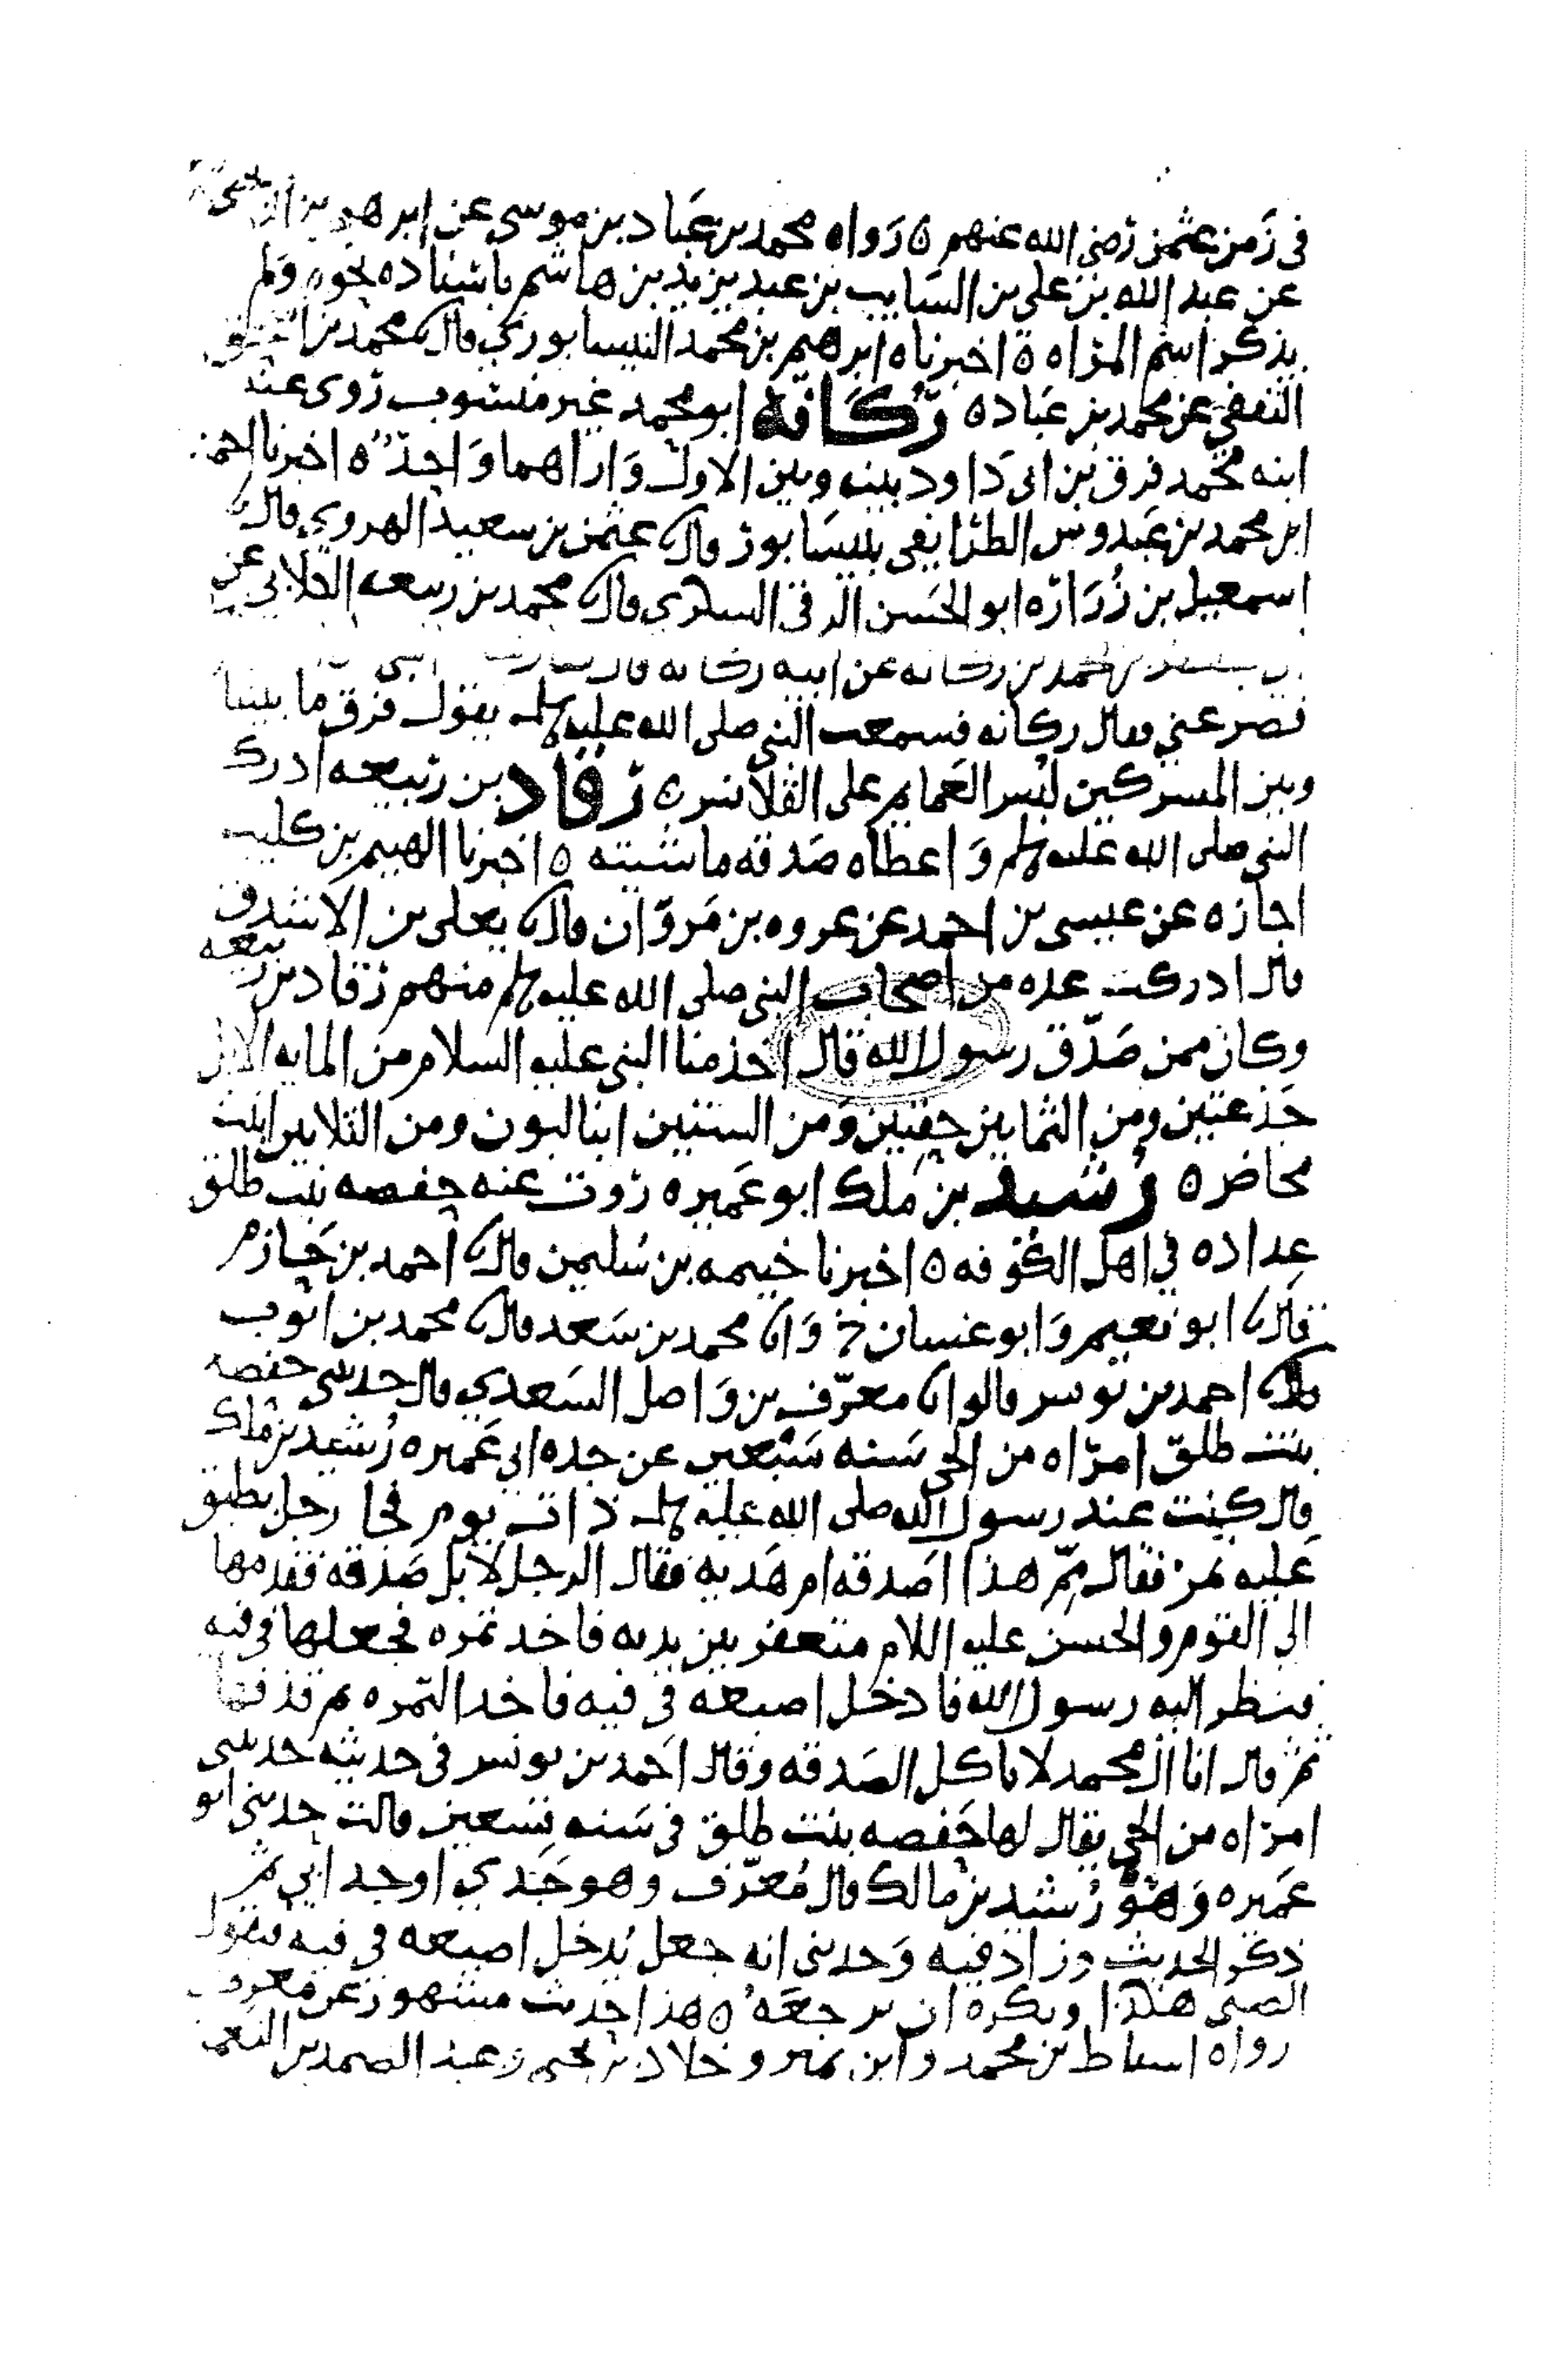 في زمن عثمن رضي الله عنهم ه رواه محمد بن عباد بن موسى عن ابرهيم بن
عن عبد الله بن علي بن السايب بن عبد يزيد بن هاشم باسناده نحوه ولم
يذكر اسم المراه ه اخبرناه ابرهيم بن محمد النيسابوري قال محمد بن اسحق
الثقفي عن محمد بن عباده ركانة ابو محمد غير منسوب روى عنه
ابنه محمد فرق بن ابي داود بينه وبين الاول واراهما واحدا ه اخبرنا احمد
ابن محمد بن عبدوس الطرايفي بنيسابور قال عثمن بن سعيد الهروي قال
اسمعيل بن زراره ابو الحسن الرقي السكري قال محمد بن ربيعه الكلابي عن
محمد بن ركانه عن ابيه ركانه قال
فصرعني وقال ركانه فسمعت النبي صلى الله عليه وسلم يقول فرق ما بيننا
وبين المسركين لبس العمايم على القلانس ه رقاد بن ربيعه ادرك
النبي صلى الله عليه وسلم واعطاه صدقه ماشيته ه اخبرنا الهيثم بن كليب
اجازه عن عيسى بن احمد عن عروه بن مروان قال يعلى بن الاشدق
قال ادركت عده من اصحاب النبي صلى الله عليه وسلم منهم رقاد بن ربيعه
وكان ممن صدق رسول الله قال اخذ منا النبي عليه السلام من المايه الابل
جذعتين ومن الثمانين حقتين ومن الستين ابنا لبون ومن الثلاثين ابنت
مخاض ه رشيد بن ملك ابو عميره روت عنه حفصه بنت طلق
عداده في اهل الكوفه ه اخبرنا خيثمه بن سليمن قال احمد بن حازم
قال ابو نعيم وابو غسان ح وانا محمد بن سعد قال محمد بن ايوب
قال احمد بن يونس قالوا انا معرف بن واصل السعدي قال حدثتني حفصه
بنت طلق امراه من الحي سنه سبعين عن جده ابي عميره رشيد بن ملك
قال كنت عند رسول الله صلى الله عليه وسلم ذات يوم فجا رجل بطبق
عليه تمر فقال مم هذا اصدقه ام هديه فقال الرجل لا بل صدقه فقدمها
الى القوم والحسن عليه السلام متعفر بين يديه فاخذ تمره فجعلها في فيه
فنظر اليه رسول الله فادخل اصبعه في فيه فاخذ التمره ثم قذفها
ثم قال انا ال محمد لا ناكل الصدقه وقال احمد بن يونس في حديثه حدثتني
امراه من الحي يقال لها حفصه بنت طلق في سنه تسعين قالت حدثني ابو
عميره وهو رشيد بن مالك قال معرف وهو جدي او جد ابي ثم
ذكر الحديث وزاد فيه وحدثني انه جعل يدخل اصبعه في فيه فيقول
الصبي هكذا ويكره ان يرجعه ه هذا حديث مشهور عن معروف
رواه اسباط بن محمد وابن نمير وخلاد بن يحيى وعبد الصمد بن النعمن